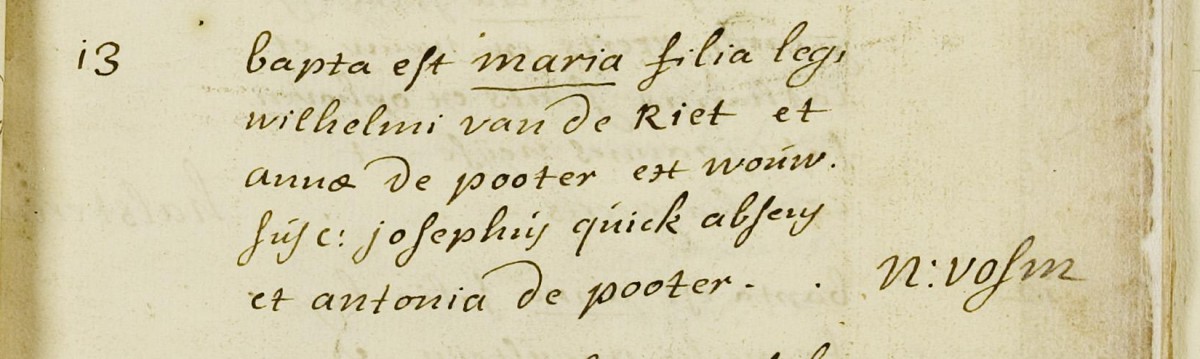 13 bapta est maria filia leg:
wilhelmi van de Riet et
annæ de pooter ex wouw.
susc: josephus quick absens
et antonia de pooter. . N: vosm